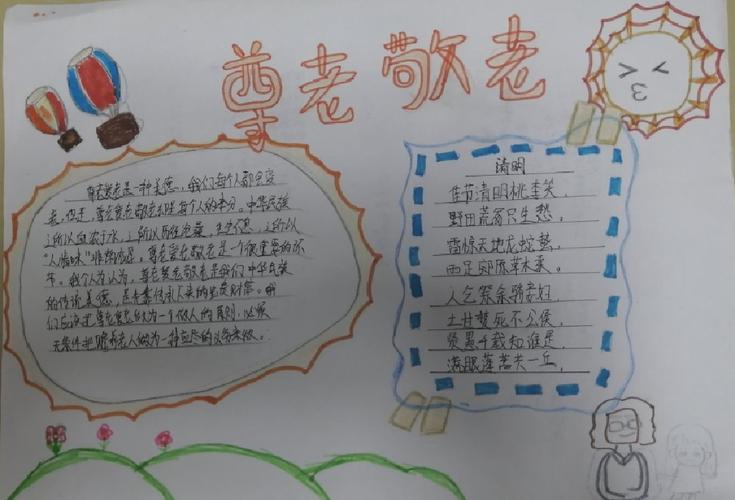 尊老敬老
尊老爱老是一种美德，我们每个人都会变
老，但是，尊老爱老敬老是每个人的本分。中华民族
之所以血浓于水，之所以历经沧桑，生生不息，之所以
"人情味"非常浓厚，尊老爱老敬老是一个很重要的环
节。我个人认为，尊老爱老敬老是我们中华民族
的传统美德，是先辈传承下来的宝贵财富。我
们应该把尊老爱老作为一个做人的准则，以
无条件把赡养老人做为一种应尽的义务来做。
清明
佳节清明桃李笑，
野田荒冢只生愁。
雷惊天地龙蛇蛰，
雨足郊原草木柔。
人乞祭余骄妾妇，
士甘焚死不公侯。
贤愚千载知谁是，
满眼蓬蒿共一丘。